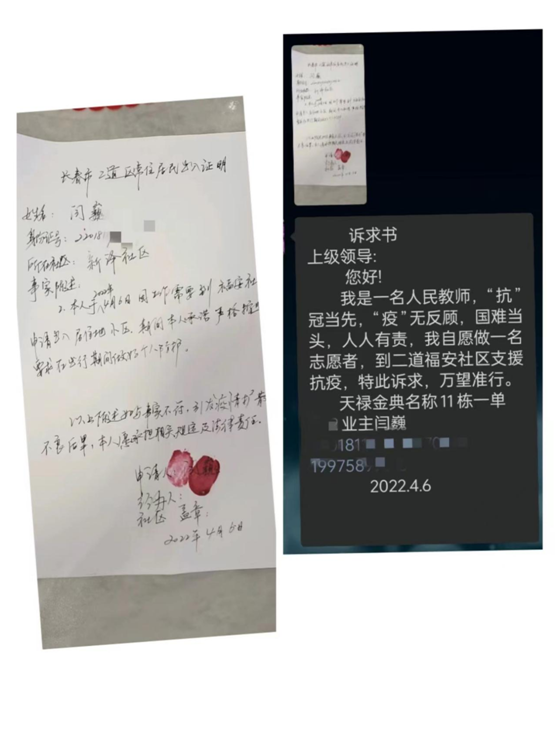 长春市二道区来往居民出入证明
姓名：闫巍
身份证号：220181
所在社区：新泽社区
事实陈述：
2022年
2.本人于4月6日因工作需要到
申请出入居住地小区，期间本人承诺严格按
要求在出行期间做好个人防护。
以上陈述如与事实不符，引发疫情扩散
不良后果，本人愿承担相关规定及法律责任。
申请人
经办人：
社区 盖章：
2022年4月6日
诉求书
上级领导:
您好!
我是一名人民教师，“抗”
冠当先，“疫”无反顾，国难当
头，人人有责，我自愿做一名
志愿者，到二道福安社区支援
抗疫，特此诉求，万望准行。
天禄金典名称11栋一单
业主闫巍
181
199758
2022.4.6